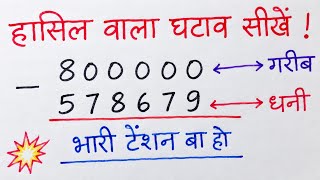 हासिल वाला घटाव सीखें !
800000 ↔ गरीब
– 578679 ↔ धनी
भारी टेंशन बा हो